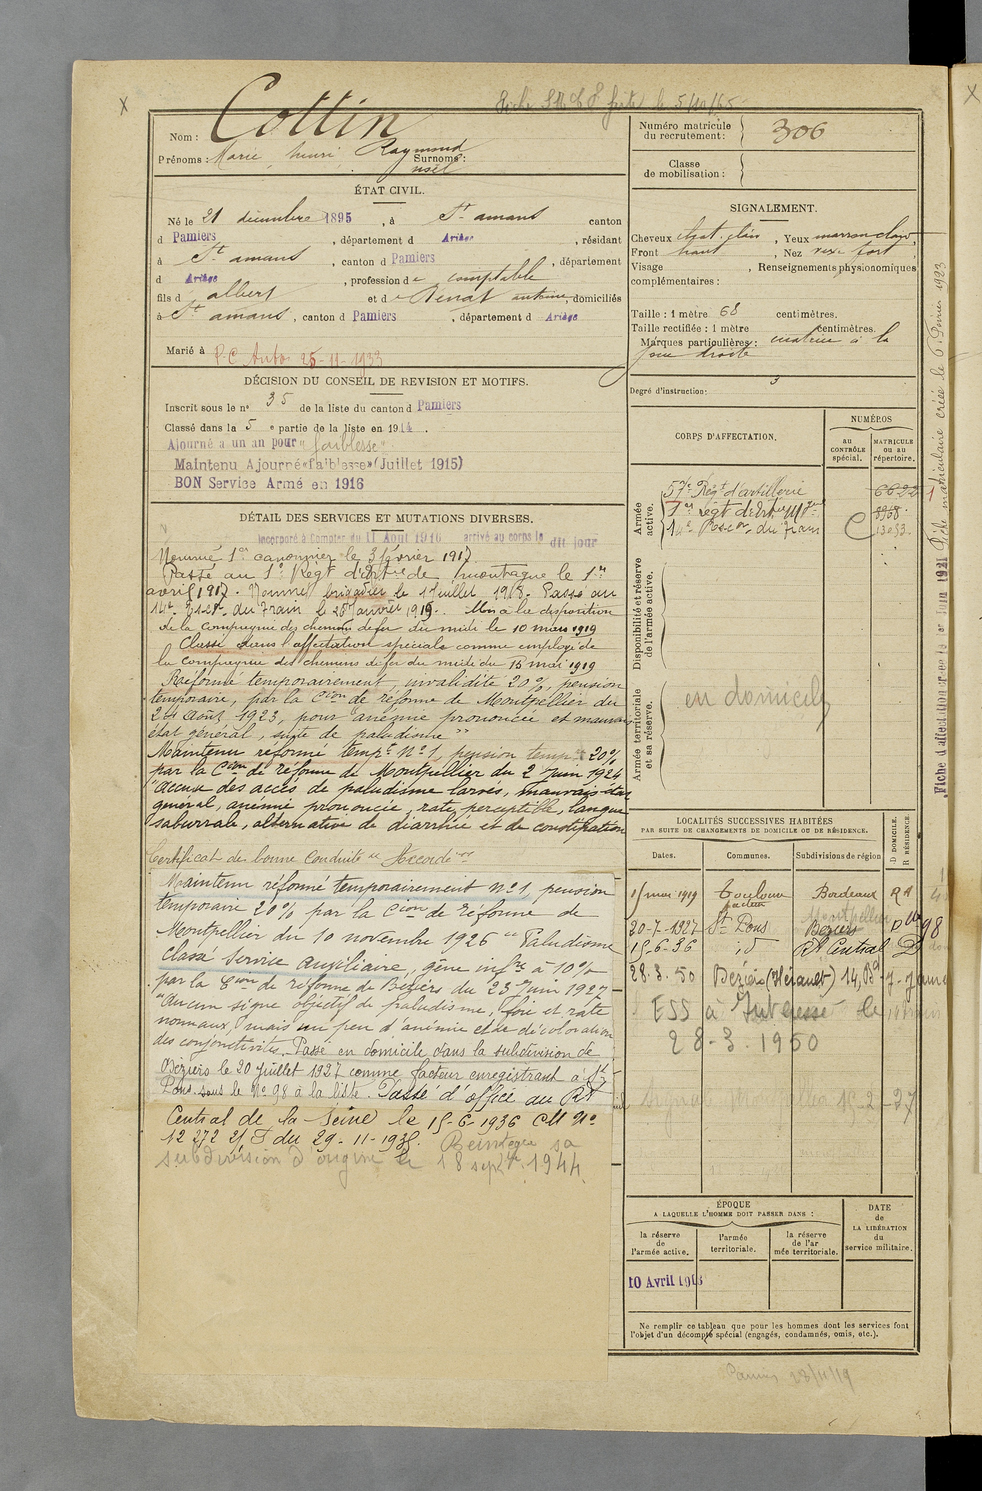 Cottin
Nom :
Prénoms : Marie, henri, Raymond
Surnoms : noël
ÉTAT CIVIL.
Né le 21 décembre 1895, à St amans canton
d Pamiers, département d Ariège, résidant
à St amans, canton d Pamiers, département
d Ariège, profession de comptable
fils d albert et de antoine, domiciliés
à St amans, canton d Pamiers, département d Ariège
Marié à P.C. Auto 25-11-1933
DÉCISION DU CONSEIL DE REVISION ET MOTIFS.
Inscrit sous le n° 35 de la liste du canton d Pamiers
Classé dans la 5e partie de la liste en 1914.
Ajourné à un an pour "faiblesse"
Maintenu Ajourné «faiblesse» (Juillet 1915)
BON Service Armé en 1916
DÉTAIL DES SERVICES ET MUTATIONS DIVERSES.
Incorporé à Compter du 11 Août 1916 arrivé au corps le dit jour
Nommé 1er canonnier le 3 février 1917
Passé au 1er Régt d'Artie de montagne le 1er
avril 1917. Nommé brigadier le 1 Juillet 1918. Passé au
14e Escon du Train le 28 Janvier 1919. Mis à la disposition
de la compagnie des chemins de fer du midi le 10 mars 1919
Classé dans l'affectation spéciale comme employé de
la compagnie des chemins de fer du midi du 15 mai 1919
Réformé temporairement, invalidité 20%, pension
temporaire, par la Cion de réforme de Montpellier du
24 Août 1923, pour "anémie prononcée et mauvais
état général, suite de paludisme"
Maintenu réformé tempre N°1, pension tempre 20%
par la Cion de réforme de Montpellier du 2 Juin 1924
"accuse des accès de paludisme larvés, mauvais état
général, anémie prononcée, rate perceptible, langue
saburrale, alternative de diarrhée et de constipation
Certificat de bonne conduite "Accordé"
Maintenu réformé temporairement n°1, pension
temporaire 20% par la Cion de réforme de
Montpellier du 10 novembre 1926 "Paludisme
Classé Service auxiliaire, gêne infre à 10%
par la Cion de réforme de Béziers du 23 Juin 1927
"Aucun signe objectif de paludisme, foie et rate
normaux, mais un peu d'anémie et de décoloration
des conjonctivites. Passé en domicile dans la subdivision de
Béziers le 20 Juillet 1927 comme facteur enregistrant à St
Pons sous le N° 98 à la liste. Passé d'office au Rt
Central de la Seine le 15-6-1936 CM N°
12 272 2/S du 29-11-1935. Réintégré sa
subdivision d'origine le 18 sept 1944.
Numéro matricule du recrutement : 306
Classe de mobilisation :
SIGNALEMENT.
Cheveux chat. clair, Yeux marron clair,
Front haut, Nez fort,
Visage, Renseignements physionomiques
complémentaires :
Taille : 1 mètre 68 centimètres.
Taille rectifiée : 1 mètre centimètres.
Marques particulières : cicatrice à la
joue droite
Degré d'instruction : 3
CORPS D'AFFECTATION.
NUMÉROS
au CONTRÔLE spécial.
MATRICULE ou au répertoire.
Armée active.
57e Régt d'artillerie
1er Régt d'Artie Mgne 8968
14e Escon du Train 13093
Disponibilité et réserve de l'armée active.
Armée territoriale et sa réserve.
en domicile
LOCALITÉS SUCCESSIVES HABITÉES
PAR SUITE DE CHANGEMENTS DE DOMICILE OU DE RÉSIDENCE.
Dates.
Communes.
Subdivisions de région
D. DOMICILE.
R. RÉSIDENCE.
15 mai 1919 Toulouse Bordeaux
facteur Montpellier
20-7-1927 St Pons Béziers D 98
15-6-36 id Rt Central D
28.3.50 Béziers (Hérault) 14, Bd
ESS à
28-3.1950
ÉPOQUE
A LAQUELLE L'HOMME DOIT PASSER DANS :
la réserve de l'armée active.
l'armée territoriale.
la réserve de l'ar mée territoriale.
DATE de LA LIBÉRATION du service militaire.
10 Avril 1913
Ne remplir ce tableau que pour les hommes dont les services font
l'objet d'un décompte spécial (engagés, condamnés, omis, etc.).
Pamiers 23/11/19
Fiche matriculaire créée le 6 Février 1923